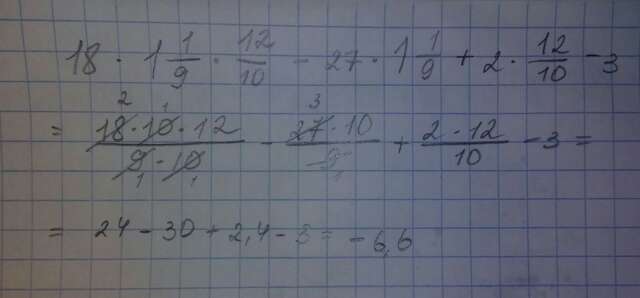 18 · 1 1/9 · 12/10 - 27 · 1 1/9 + 2 · 12/10 - 3
= 18·10·12/9·10 - 27·10/9 + 2·12/10 - 3 =
= 24 - 30 + 2,4 - 3 = -6,6